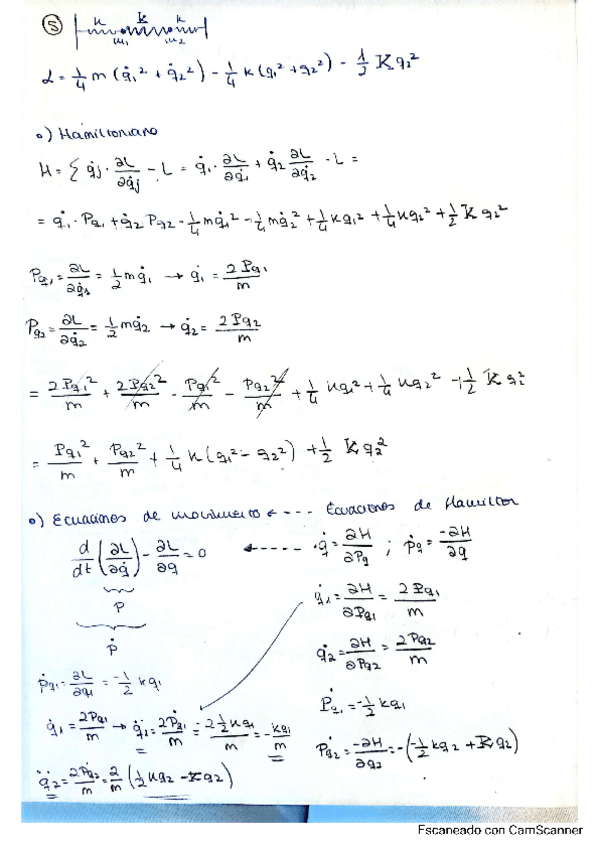 ⑤ k k k
m₁ m₂
L = 1/4 m (q̇₁² + q̇₂²) - 1/4 k (q₁² + q₂²) - 1/2 K q₂²
o) Hamiltoniano
H = Σ q̇j · ∂L/∂q̇j - L = q̇₁ · ∂L/∂q̇₁ + q̇₂ ∂L/∂q̇₂ - L =
= q̇₁ · Pq₁ + q̇₂ Pq₂ - 1/4 m q̇₁² - 1/4 m q̇₂² + 1/4 k q₁² + 1/4 k q₂² + 1/2 K q₂²
Pq₁ = ∂L/∂q̇₁ = 1/2 m q̇₁ → q̇₁ = 2Pq₁/m
Pq₂ = ∂L/∂q̇₂ = 1/2 m q̇₂ → q̇₂ = 2Pq₂/m
= 2Pq₁²/m + 2Pq₂²/m - Pq₁²/m - Pq₂²/m + 1/4 k q₁² + 1/4 k q₂² + 1/2 K q₂²
= Pq₁²/m + Pq₂²/m + 1/4 k (q₁² - q₂²) + 1/2 K q₂²
o) Ecuaciones de movimiento ←--- Ecuaciones de Hamilton
d/dt (∂L/∂q̇) - ∂L/∂q = 0 ←----- · q̇ = ∂H/∂Pq ; ṗq = -∂H/∂q
P
ṗ
q̇₁ = ∂H/∂Pq₁ = 2Pq₁/m
q̇₂ = ∂H/∂Pq₂ = 2Pq₂/m
ṗq₁ = ∂L/∂q₁ = -1/2 k q₁
Ṗq₁ = -1/2 k q₁
q̇₁ = 2Pq₁/m → q̈₁ = 2Ṗq₁/m = - 2 1/2 k q₁/m = - kq₁/m
Ṗq₂ = -∂H/∂q₂ = -(-1/2 k q₂ + K q₂)
q̈₂ = 2Ṗq₂/m = 2/m (1/2 k q₂ - K q₂)
Escaneado con CamScanner